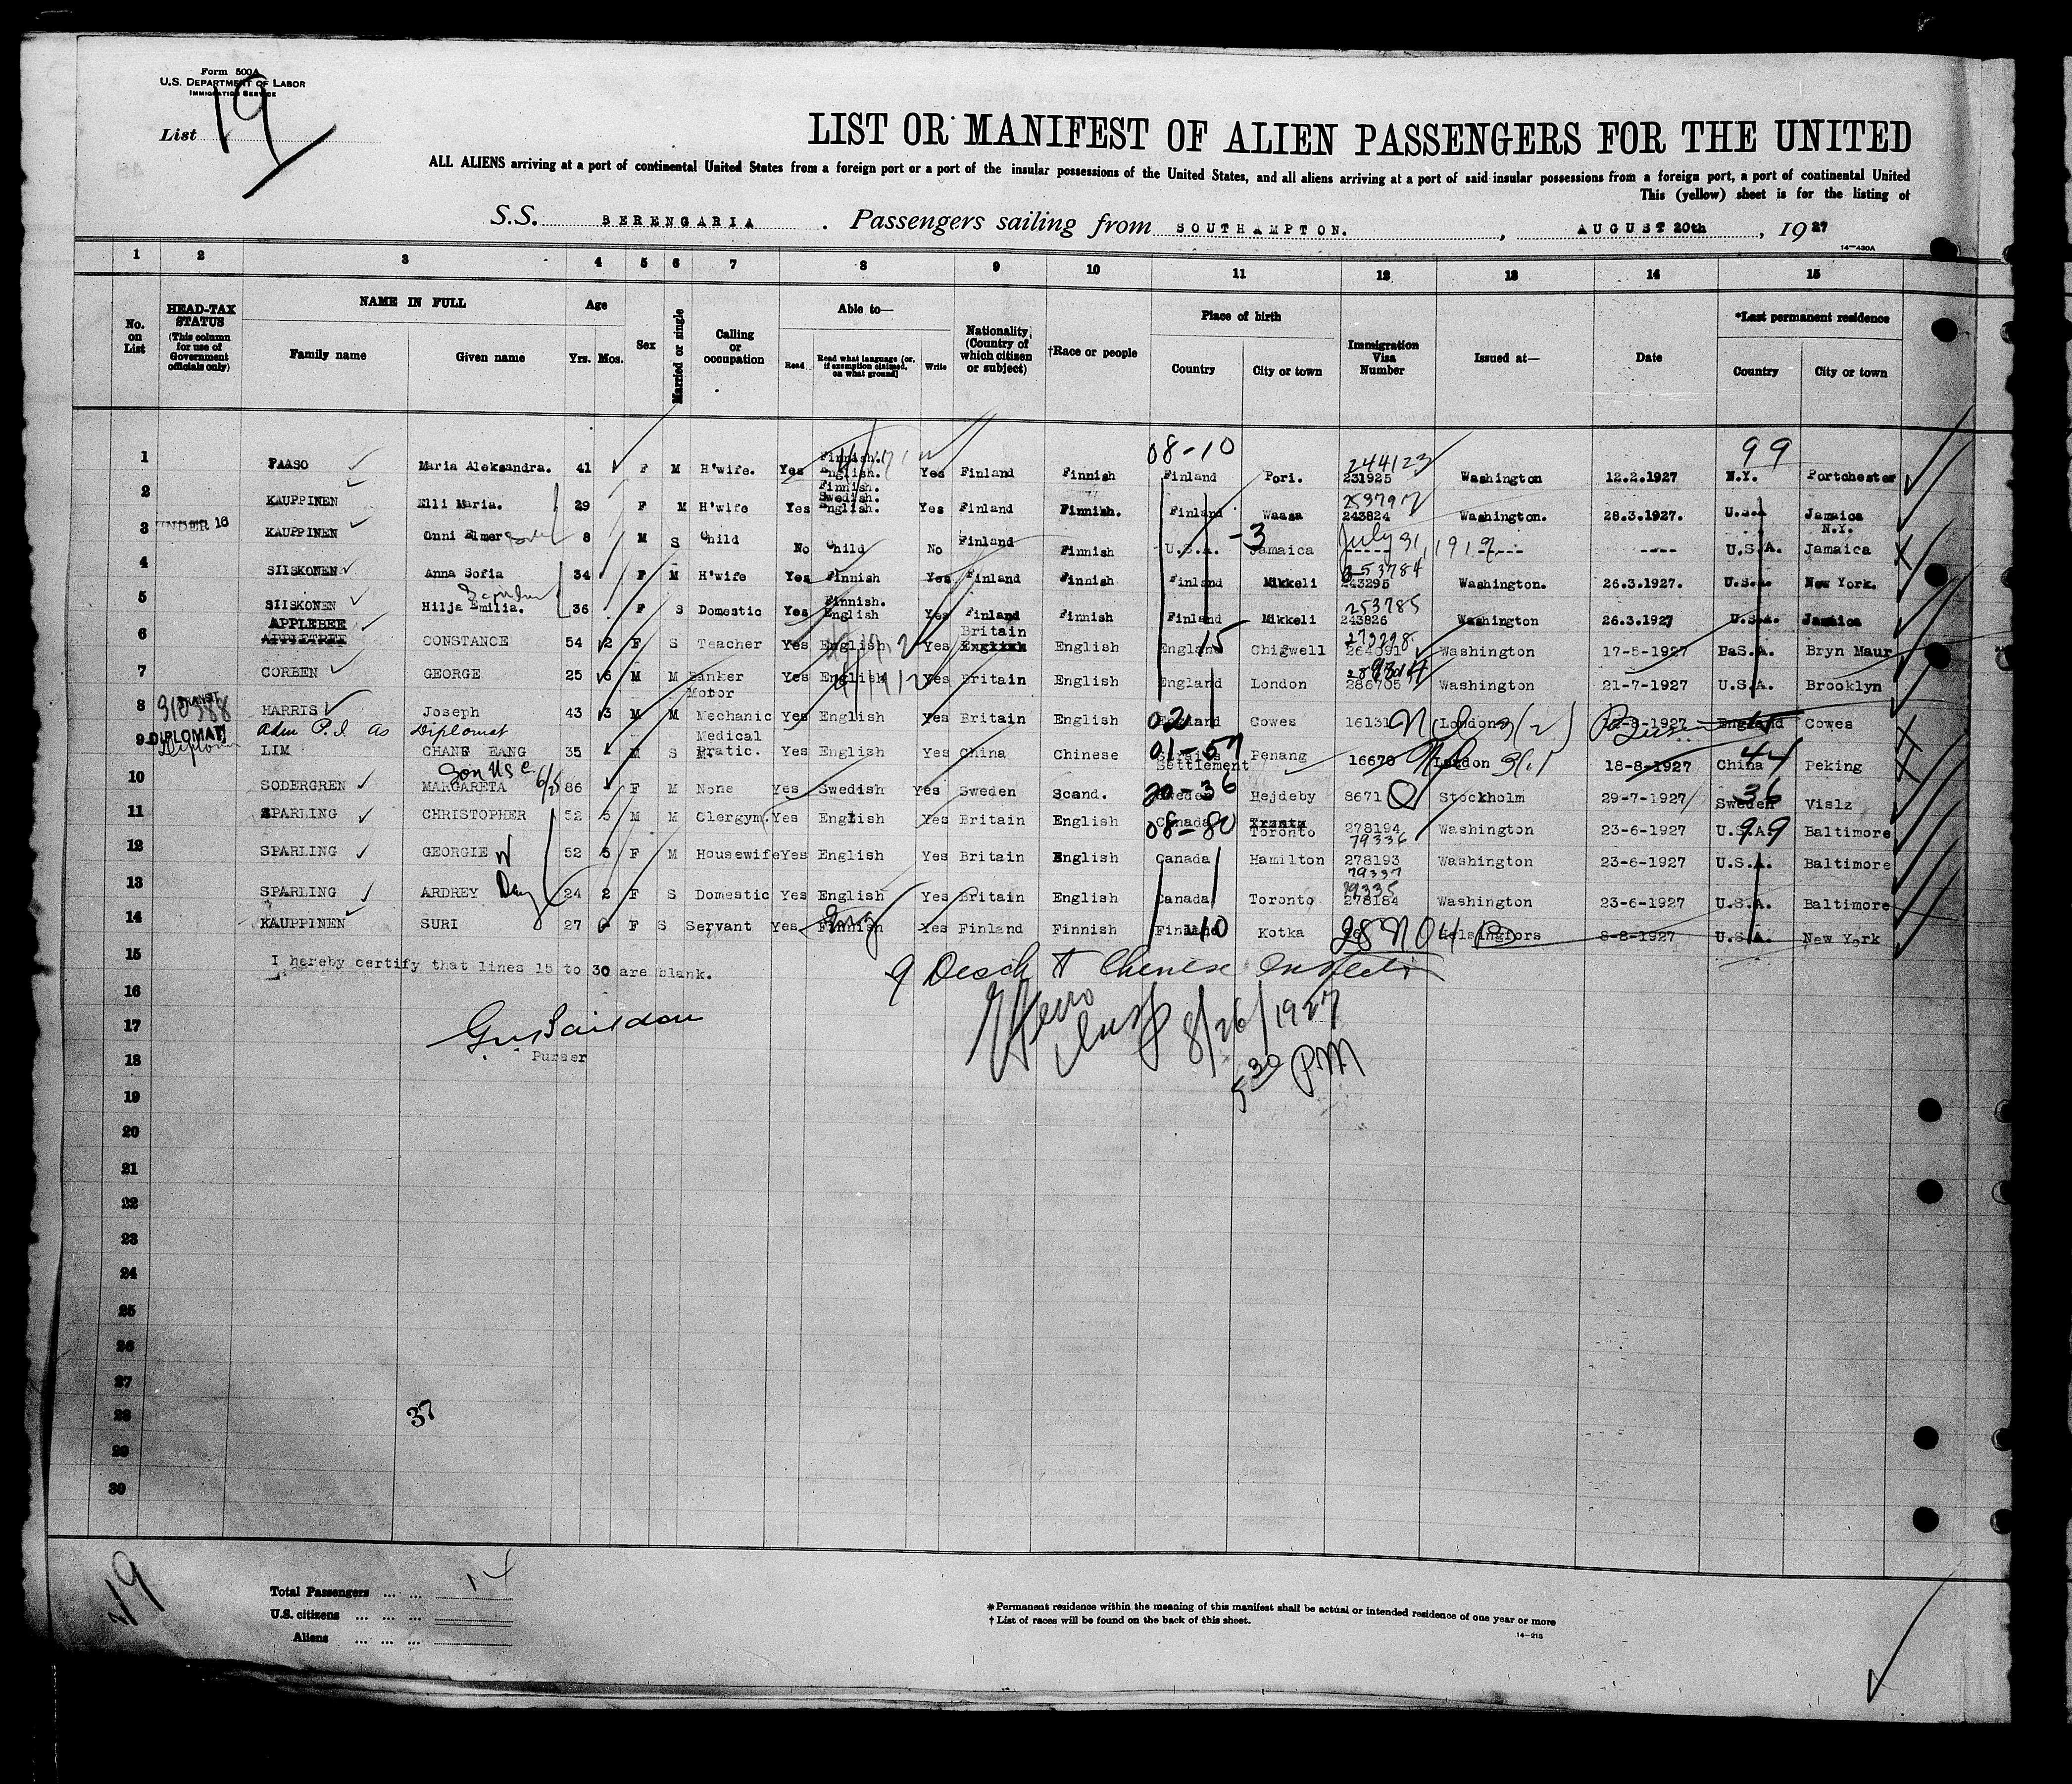 Form 500A
U.S. DEPARTMENT OF LABOR
IMMIGRATION SERVICE
List 19
LIST OR MANIFEST OF ALIEN PASSENGERS FOR THE UNITED
ALL ALIENS arriving at a port of continental United States from a foreign port or a port of the insular possessions of the United States, and all aliens arriving at a port of said insular possessions from a foreign port, a port of continental United
This (yellow) sheet is for the listing of
S.S. BERENGARIA . Passengers sailing from SOUTHAMPTON. , AUGUST 20th , 19 27
14—430A
1 2 3 4 5 6 7 8 9 10 11 12 13 14 15
No. on List
HEAD-TAX STATUS (This column for use of Government officials only)
NAME IN FULL
Family name Given name
Age
Yrs. Mos.
Sex
Married or single
Calling or occupation
Able to—
Read Read what language [or, if exemption claimed, on what ground] Write
Nationality (Country of which citizen or subject)
†Race or people
Place of birth
Country City or town
Immigration Visa Number
Issued at—
Date
*Last permanent residence
Country City or town
08-10 99
244123
1 PAASO Maria Aleksandra. 41 F M H'wife. Yes Finnish. English. Yes Finland Finnish Finland Pori. 231925 Washington 12.2.1927 N.Y. Portchester
253797
2 KAUPPINEN Elli Maria. 29 F M H'wife Yes Finnish. Swedish. English. Yes Finland Finnish. Finland Waasa 243824 Washington. 28.3.1927. U.S.A Jamaica N.Y.
3 UNDER 16 KAUPPINEN Onni Elmer 8 M S Child No Child No Finland Finnish U.S.A. -3 Jamaica July 31, 1919 ---- U.S.A. Jamaica
253784
4 SIISKONEN Anna Sofia 34 F M H'wife Yes Finnish Yes Finland Finnish Finland Mikkeli 243295 Washington. 26.3.1927. U.S.A. New York.
253785
5 SIISKONEN Hilja Emilia. 36 F S Domestic Yes Finnish. English Yes Finland Finnish Finland Mikkeli 243826 Washington 26.3.1927 U.S.A. Jamaica
APPLEBEE
6 APPLETREE CONSTANCE 54 2 F S Teacher Yes English Yes Britain English English England 15 Chigwell 273228 264091 Washington 17-5-1927 PaS.A. Bryn Maur
7 CORBEN GEORGE 25 6 M M Banker Yes English Yes Britain English England London 286705 Washington 21-7-1927 U.S.A. Brooklyn
8 TRANSIT 910388 HARRIS Joseph 43 3 M M Motor Mechanic Yes English Yes Britain English England 02 Cowes 16131 London 3(2) 12-8-1927 England Cowes
Adm P.I. as Diplomat
9 DIPLOMAT Diplomat LIM CHANE EANG 35 M S Medical Pratic. Yes English Yes China Chinese 01-57 Settlement Penang 16670 London 3(1 18-8-1927 China 44 Peking
10 SODERGREN MARGARETA 86 F M None Yes Swedish Yes Sweden Scand. Sweden 20-36 Hejdeby 8671 Q Stockholm 29-7-1927 Sweden 36 Vislz
11 SPARLING CHRISTOPHER 52 5 M M Clergym. Yes English Yes Britain English Canada 08-80 Toronto 278194 79336 Washington 23-6-1927 U.S.A. 99 Baltimore
12 SPARLING GEORGIE W 52 5 F M Housewife Yes English Yes Britain English Canada Hamilton 278193 79337 Washington 23-6-1927 U.S.A. Baltimore
13 SPARLING ARDREY Dau 24 2 F S Domestic Yes English Yes Britain English Canada Toronto 79335 278184 Washington 23-6-1927 U.S.A. Baltimore
14 KAUPPINEN SURI 27 F S Servant Yes Finnish Eng Yes Finland Finnish Finland 10 Kotka 28 Helsingfors 8-8-1927 U.S.A. New York
15 I hereby certify that lines 15 to 30 are blank.
16
17
Purser
18
8/26/1927
5 30 PM
19
20
21
22
23
24
25
26
27
28 37
29
30
19
Total Passengers ... ... 14
U.S. citizens ... ... ...
Aliens ... ... ...
*Permanent residence within the meaning of this manifest shall be actual or intended residence of one year or more
† List of races will be found on the back of this sheet.
14—213